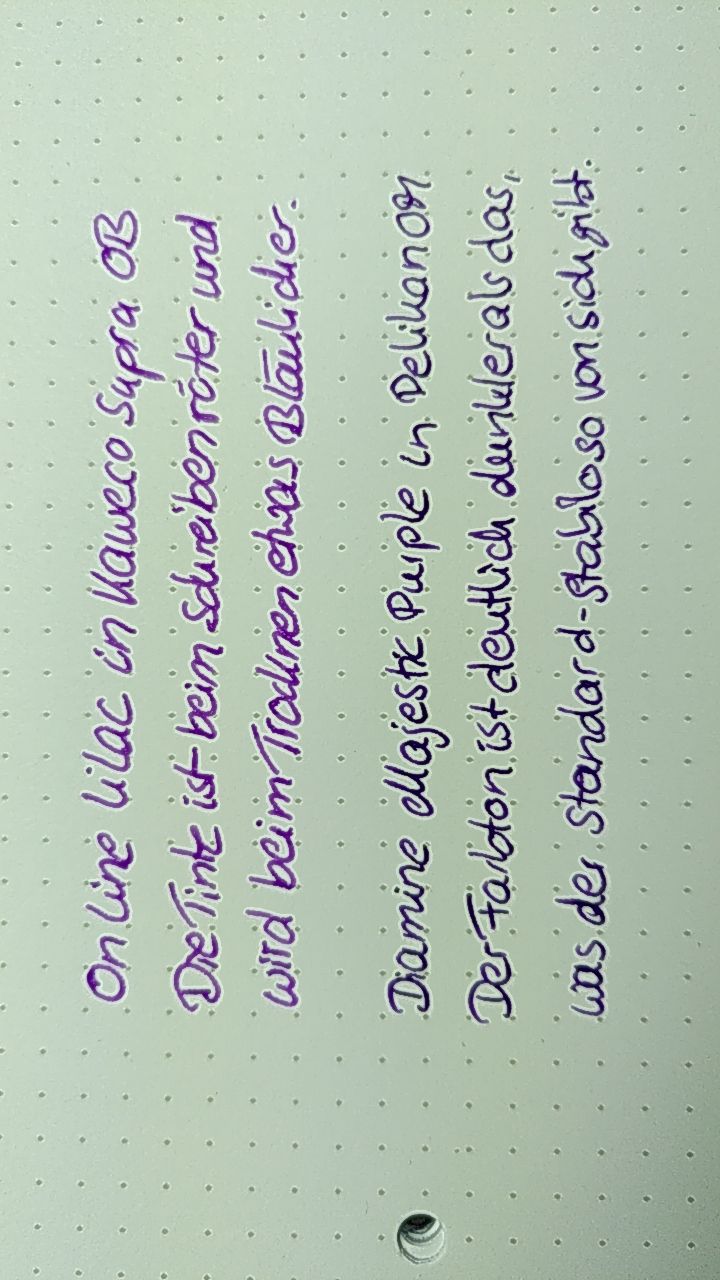 Online Lilac in Kaweco Supra OB
Die Tinte ist beim Schreiben röter und
wird beim Trocknen etwas Bläulicher.
Diamine Majestic Purple in Pelikan OM
Der Farbton ist deutlich dunkler als das,
was der Standard-Stabilo so von sich gibt.